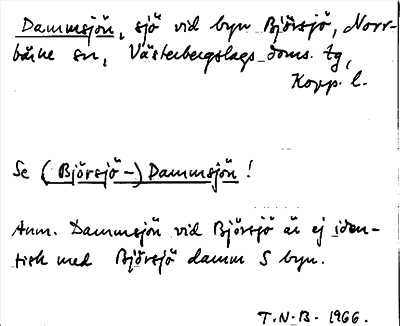 Dammsjön, sjö vid byn Björsjö, Norr-
bärke sn, Västerbergslags doms. tg,
Kopp. l.
Se (Björsjö-) Dammsjön!
Anm. Dammsjön vid Björsjö är ej iden-
tisk med Björsjö damm S byn.
T.N.B. 1966.